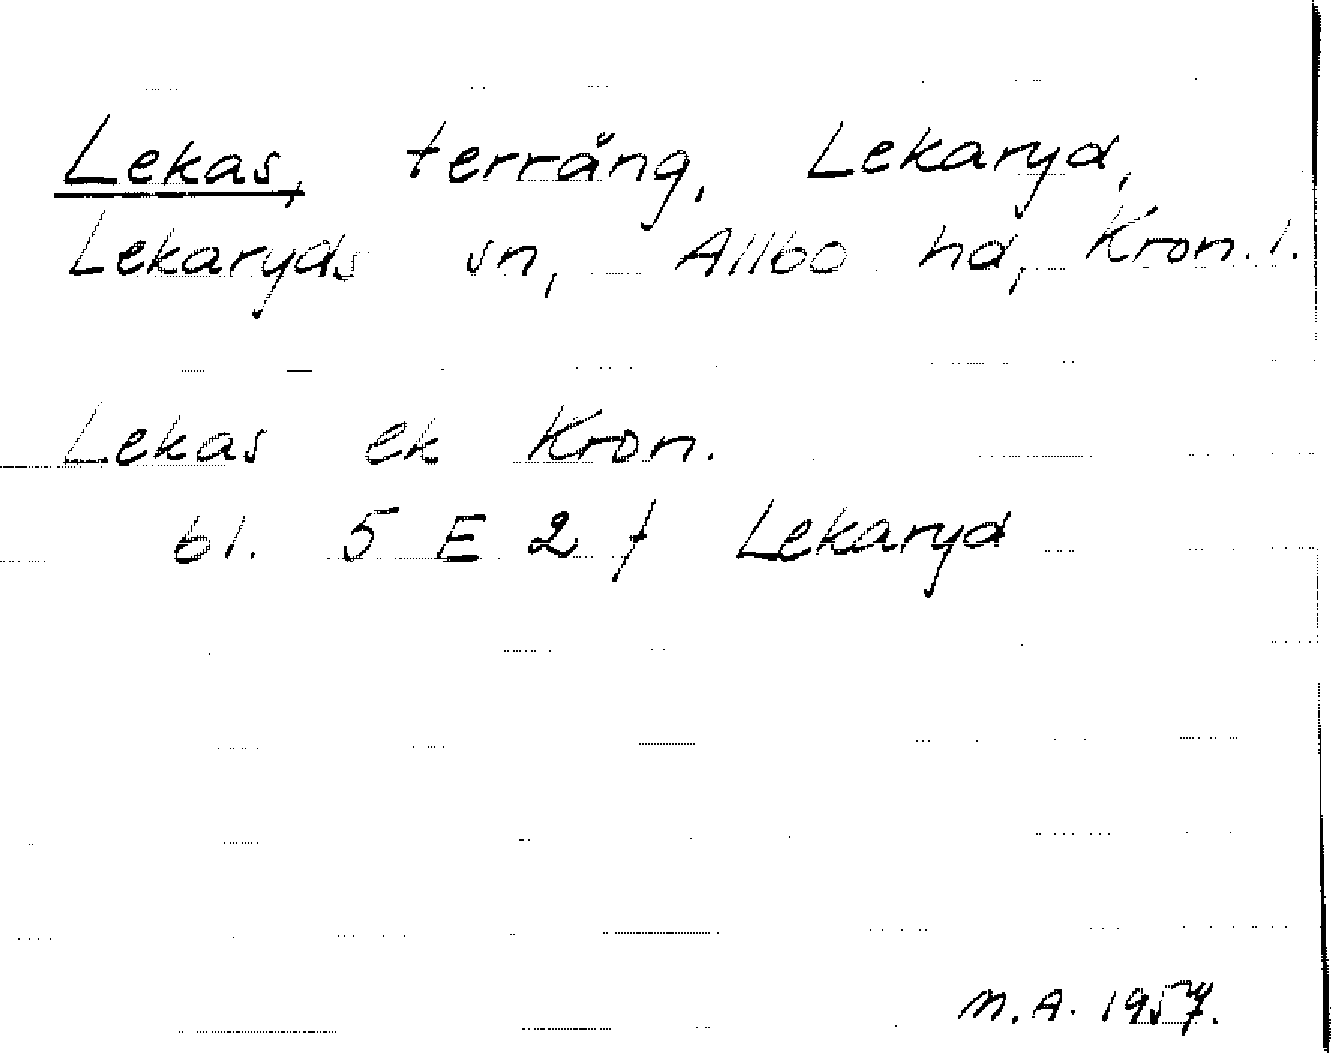 Lekas, terräng, Lekaryd,
Lekaryds sn, Allbo hd, Kron. l.
Lekas ek Kron.
bl. 5 E 2 f Lekaryd
M.A. 1957.